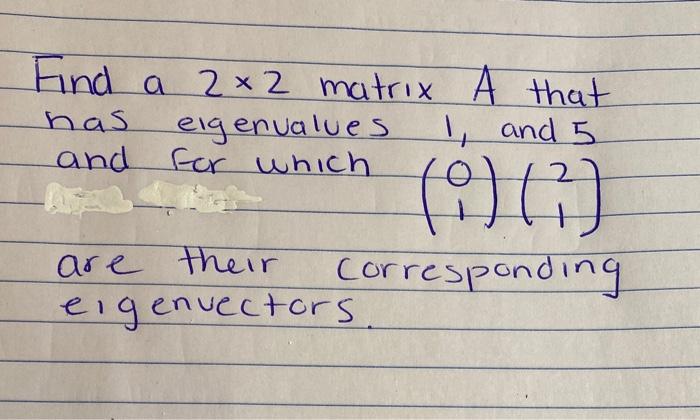 Find a 2 × 2 matrix A that
has eigenvalues 1, and 5
and for which (0 1) (2 1)
are their corresponding
eigenvectors.